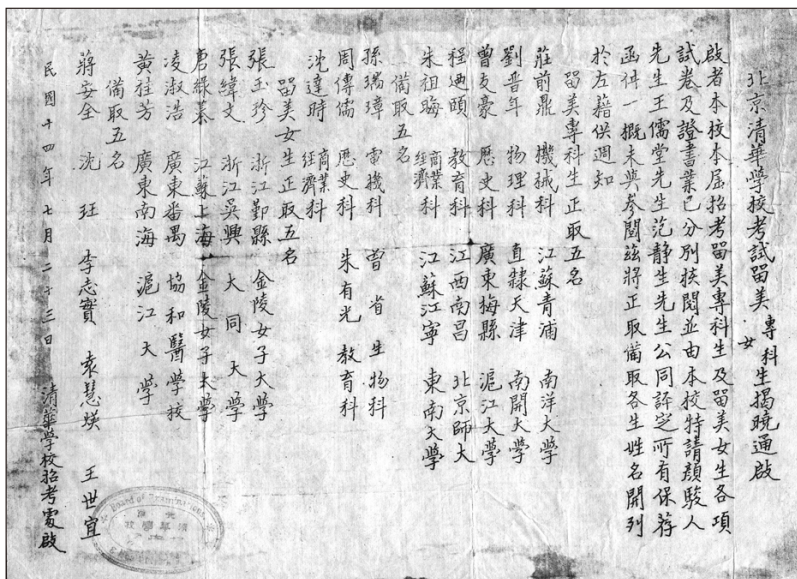 北京清華學校考試留美專科女生揭曉通啟
啟者本校本屆招考留美專科生及留美女生各項
試卷及證書業已分別挍閱並由本校特請顏駿人
先生王儒堂先生范靜生先生公同評定所有保荐
函件一概未與參閱茲將正取備取各生姓名開列
於左藉供週知
留美專科生正取五名
莊前鼎 機械科 江蘇青浦 南洋大學
劉晉年 物理科 直隸天津 南開大學
曾友豪 歷史科 廣東梅縣 滬江大學
程迺頤 教育科 江西南昌 北京師大
朱祖晦 商業經濟科 江蘇江寧 東南大學
備取五名
孫瑞璋 電機科 曾省 生物科
周傳儒 歷史科 朱有光 教育科
沈達時 商業經濟科
留美女生正取五名
張玉珍 浙江鄞縣 金陵女子大學
張緯文 浙江吳興 大同大學
唐綠蓁 江蘇上海 金陵女子大學
凌淑浩 廣東番禺 協和醫學校
黃桂芳 廣東南海 滬江大學
備取五名
蔣安全 沈玨 李志實 袁慧熒 王世宜
民國十四年七月二十三日 清華學校招考處啟
Board of Examinations